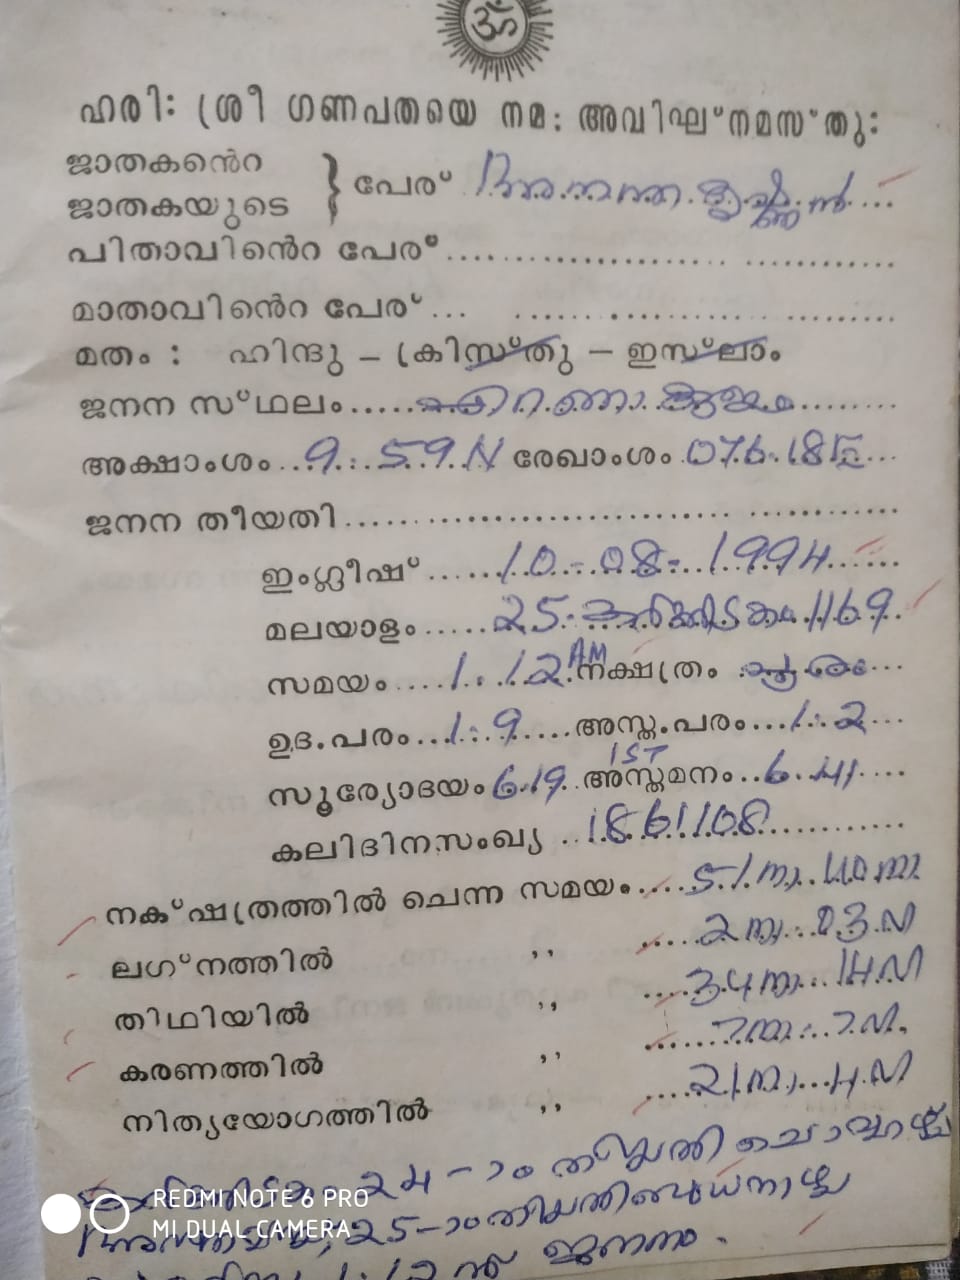 ॐ
ഹരിഃ ശ്രീ ഗണപതയെ നമഃ അവിഘ്നമസ്തുഃ
ജാതകൻെറ
ജാതകയുടെ } പേര് അനന്തകൃഷ്ണൻ
പിതാവിൻെറ പേര്
മാതാവിൻെറ പേര്
മതം : ഹിന്ദു – ക്രിസ്തു – ഇസ്ലാം
ജനന സ്ഥലം
അക്ഷാംശം 9 : 59 N രേഖാംശം 076.18 E
ജനന തീയതി
ഇംഗ്ലീഷ് 10-08-1994
മലയാളം 25-കർക്കിടകം 1169
സമയം 1.12 AM നക്ഷത്രം പൂരം
ഉദ.പരം 1:9 അസ്ത.പരം 1:2
സൂര്യോദയം 6.19 IST അസ്തമനം 6.41
കലിദിനസംഖ്യ 1861108
നക്ഷത്രത്തിൽ ചെന്ന സമയം 51 നാ. 40 വി
ലഗ്നത്തിൽ ,, 2 നാ. 03 വി
തിഥിയിൽ ,, 34 നാ. 14 വി
കരണത്തിൽ ,, 7 നാ. 7 വി.
നിത്യയോഗത്തിൽ ,, 21 നാ. 4 വി
24-ാം തിയ്യതി ചൊവ്വാഴ്ച
25-ാം തിയതി ബുധനാഴ്ച
1.12 ന് ജനനം.
REDMI NOTE 6 PRO
MI DUAL CAMERA